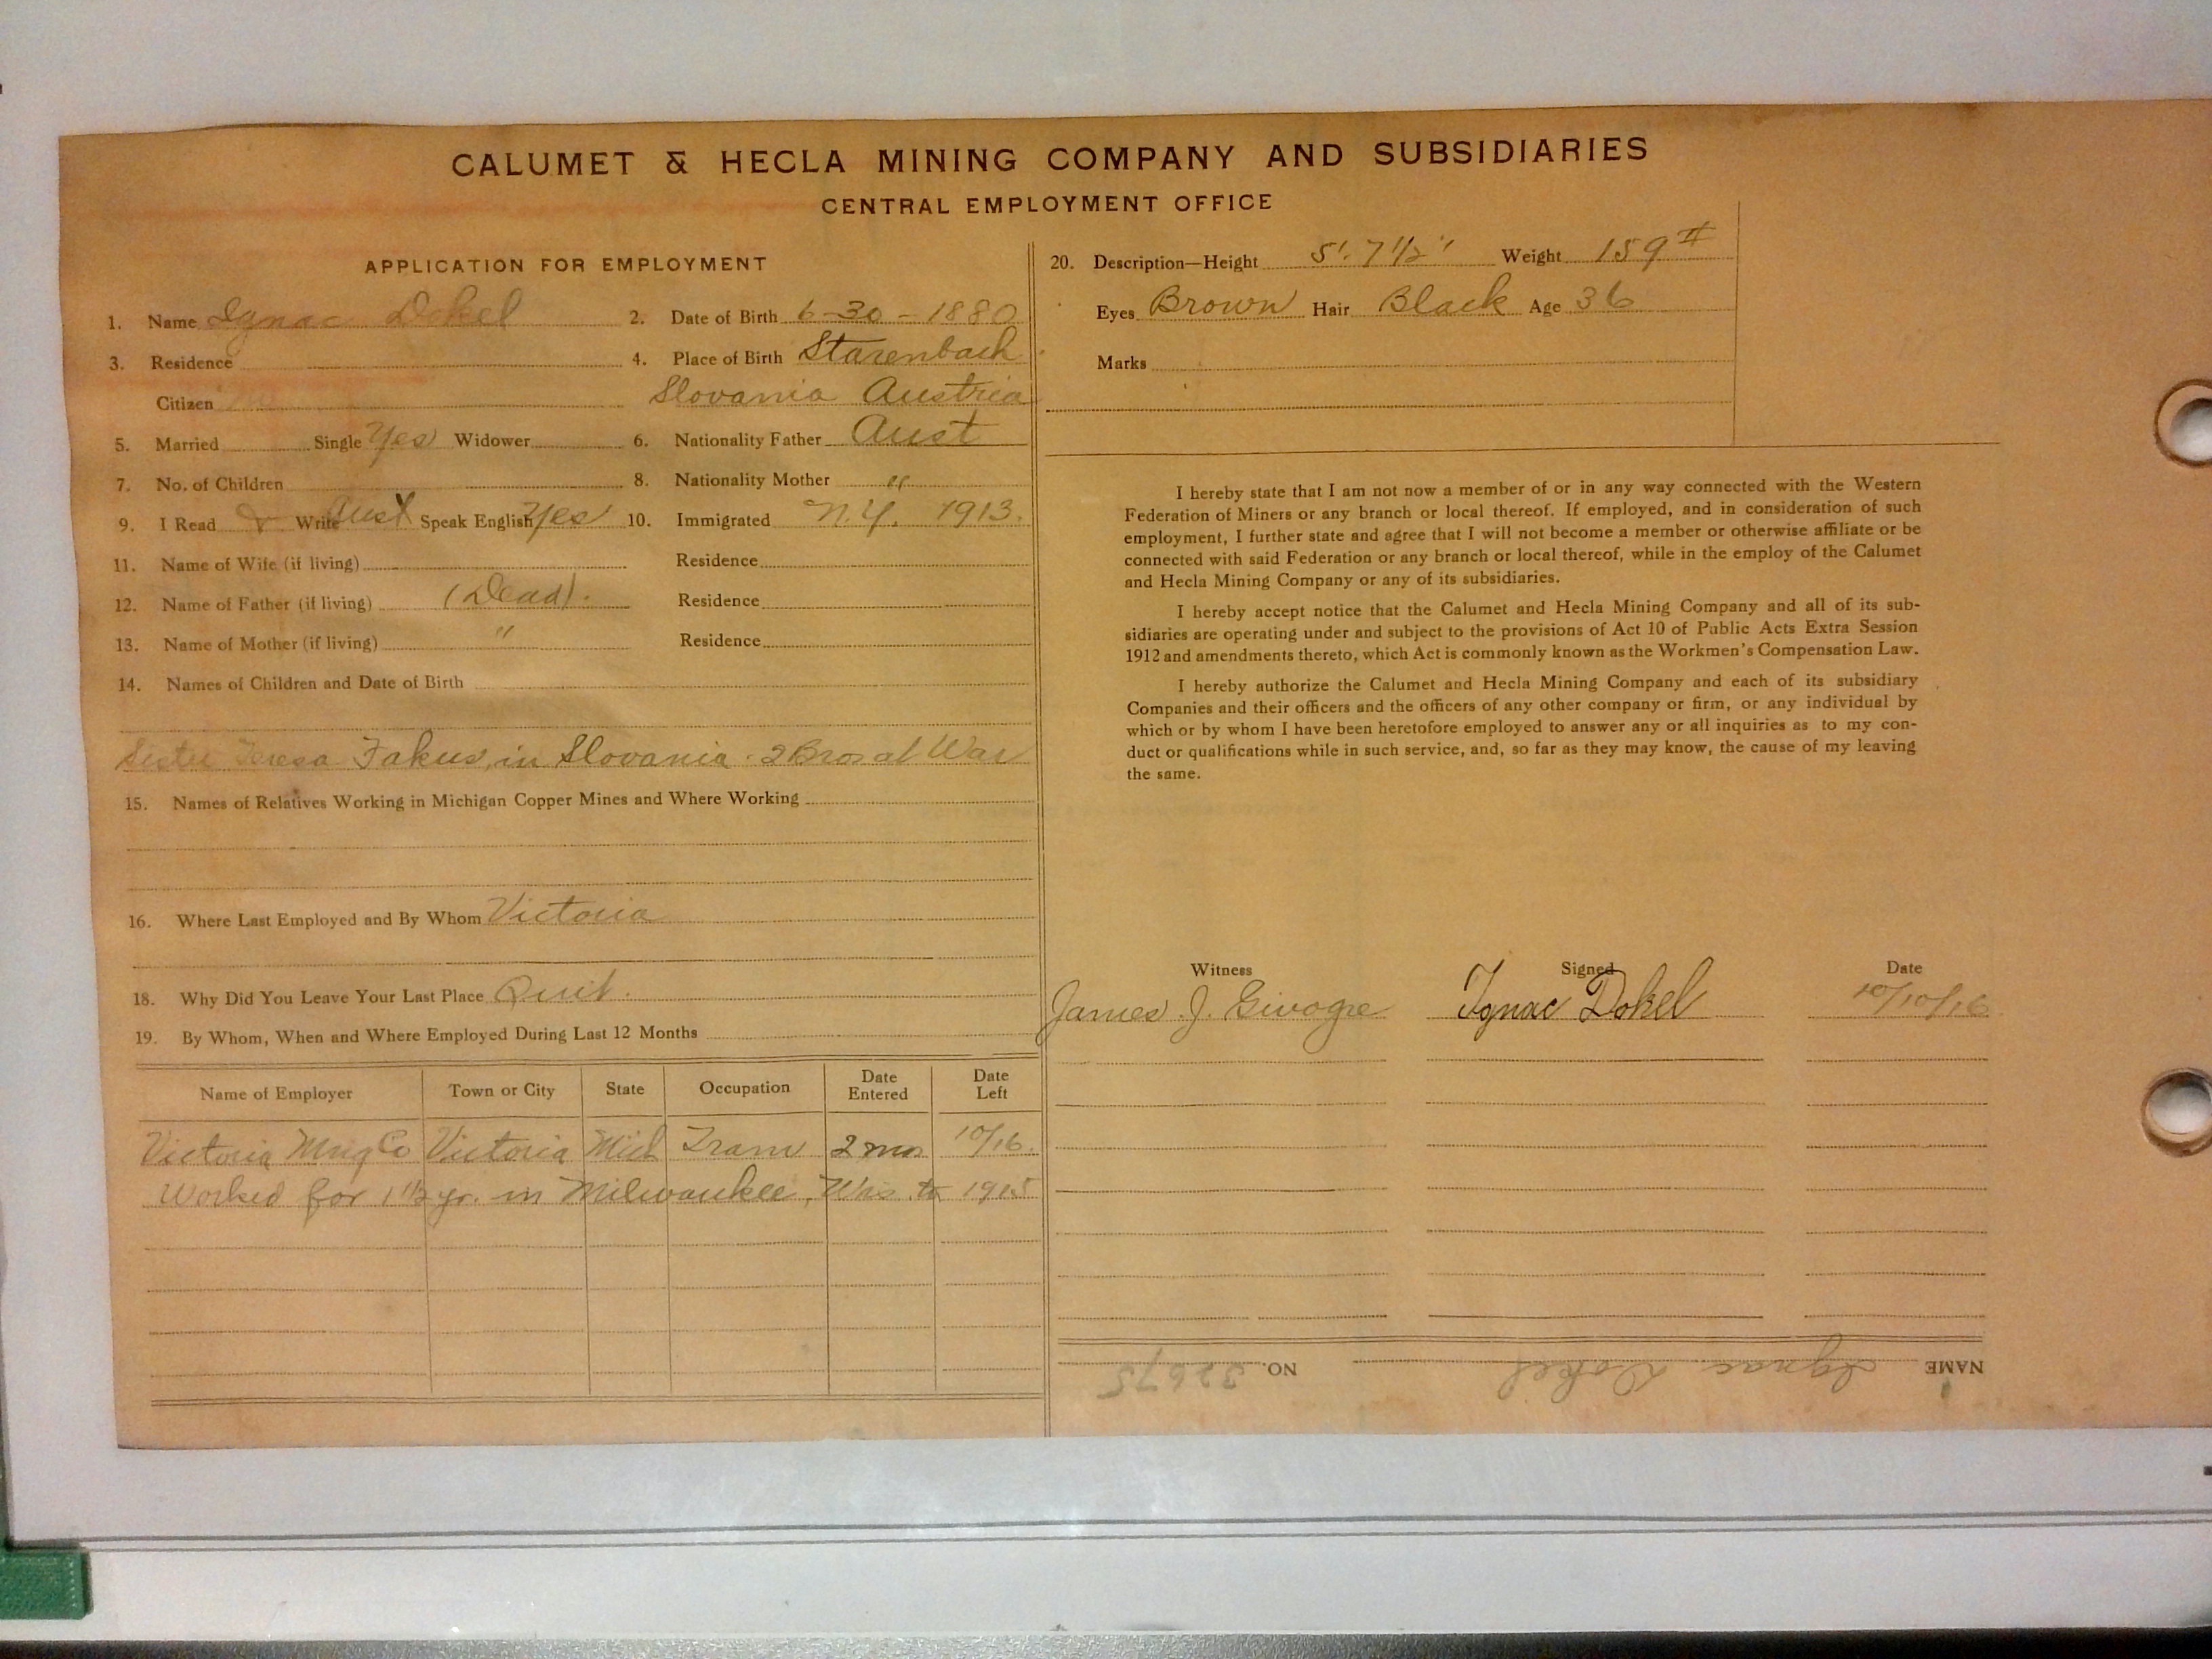 CALUMET & HECLA MINING COMPANY AND SUBSIDIARIES
CENTRAL EMPLOYMENT OFFICE
APPLICATION FOR EMPLOYMENT
1. Name Ignac Dokel 2. Date of Birth 6-30-1880
3. Residence 4. Place of Birth Starenbach
Citizen Slovania Austria
5. Married Single Yes Widower 6. Nationality Father Aust
7. No. of Children 8. Nationality Mother "
9. I Read & Write Aust Speak English Yes 10. Immigrated N.Y. 1913.
11. Name of Wife (if living) Residence
12. Name of Father (if living) (Dead). Residence
13. Name of Mother (if living) " Residence
14. Names of Children and Date of Birth
Sister Teresa Fakus, in Slovania. 2 Bros at War
15. Names of Relatives Working in Michigan Copper Mines and Where Working
16. Where Last Employed and By Whom Victoria
18. Why Did You Leave Your Last Place Quit.
19. By Whom, When and Where Employed During Last 12 Months
Name of Employer Town or City State Occupation Date Entered Date Left
Victoria Mng Co Victoria Mich Tram 2 mos 10/16.
Worked for 1 1/2 yr. in Milwaukee, Wis. to 1915
20. Description—Height 5'. 7 1/2" Weight 159 #
Eyes Brown Hair Black Age 36
Marks
I hereby state that I am not now a member of or in any way connected with the Western
Federation of Miners or any branch or local thereof. If employed, and in consideration of such
employment, I further state and agree that I will not become a member or otherwise affiliate or be
connected with said Federation or any branch or local thereof, while in the employ of the Calumet
and Hecla Mining Company or any of its subsidiaries.
I hereby accept notice that the Calumet and Hecla Mining Company and all of its sub-
sidiaries are operating under and subject to the provisions of Act 10 of Public Acts Extra Session
1912 and amendments thereto, which Act is commonly known as the Workmen's Compensation Law.
I hereby authorize the Calumet and Hecla Mining Company and each of its subsidiary
Companies and their officers and the officers of any other company or firm, or any individual by
which or by whom I have been heretofore employed to answer any or all inquiries as to my con-
duct or qualifications while in such service, and, so far as they may know, the cause of my leaving
the same.
Witness Signed Date
James J. Givogre Ignac Dokel 10/10/16
NAME Ignac Dokel NO. 32675